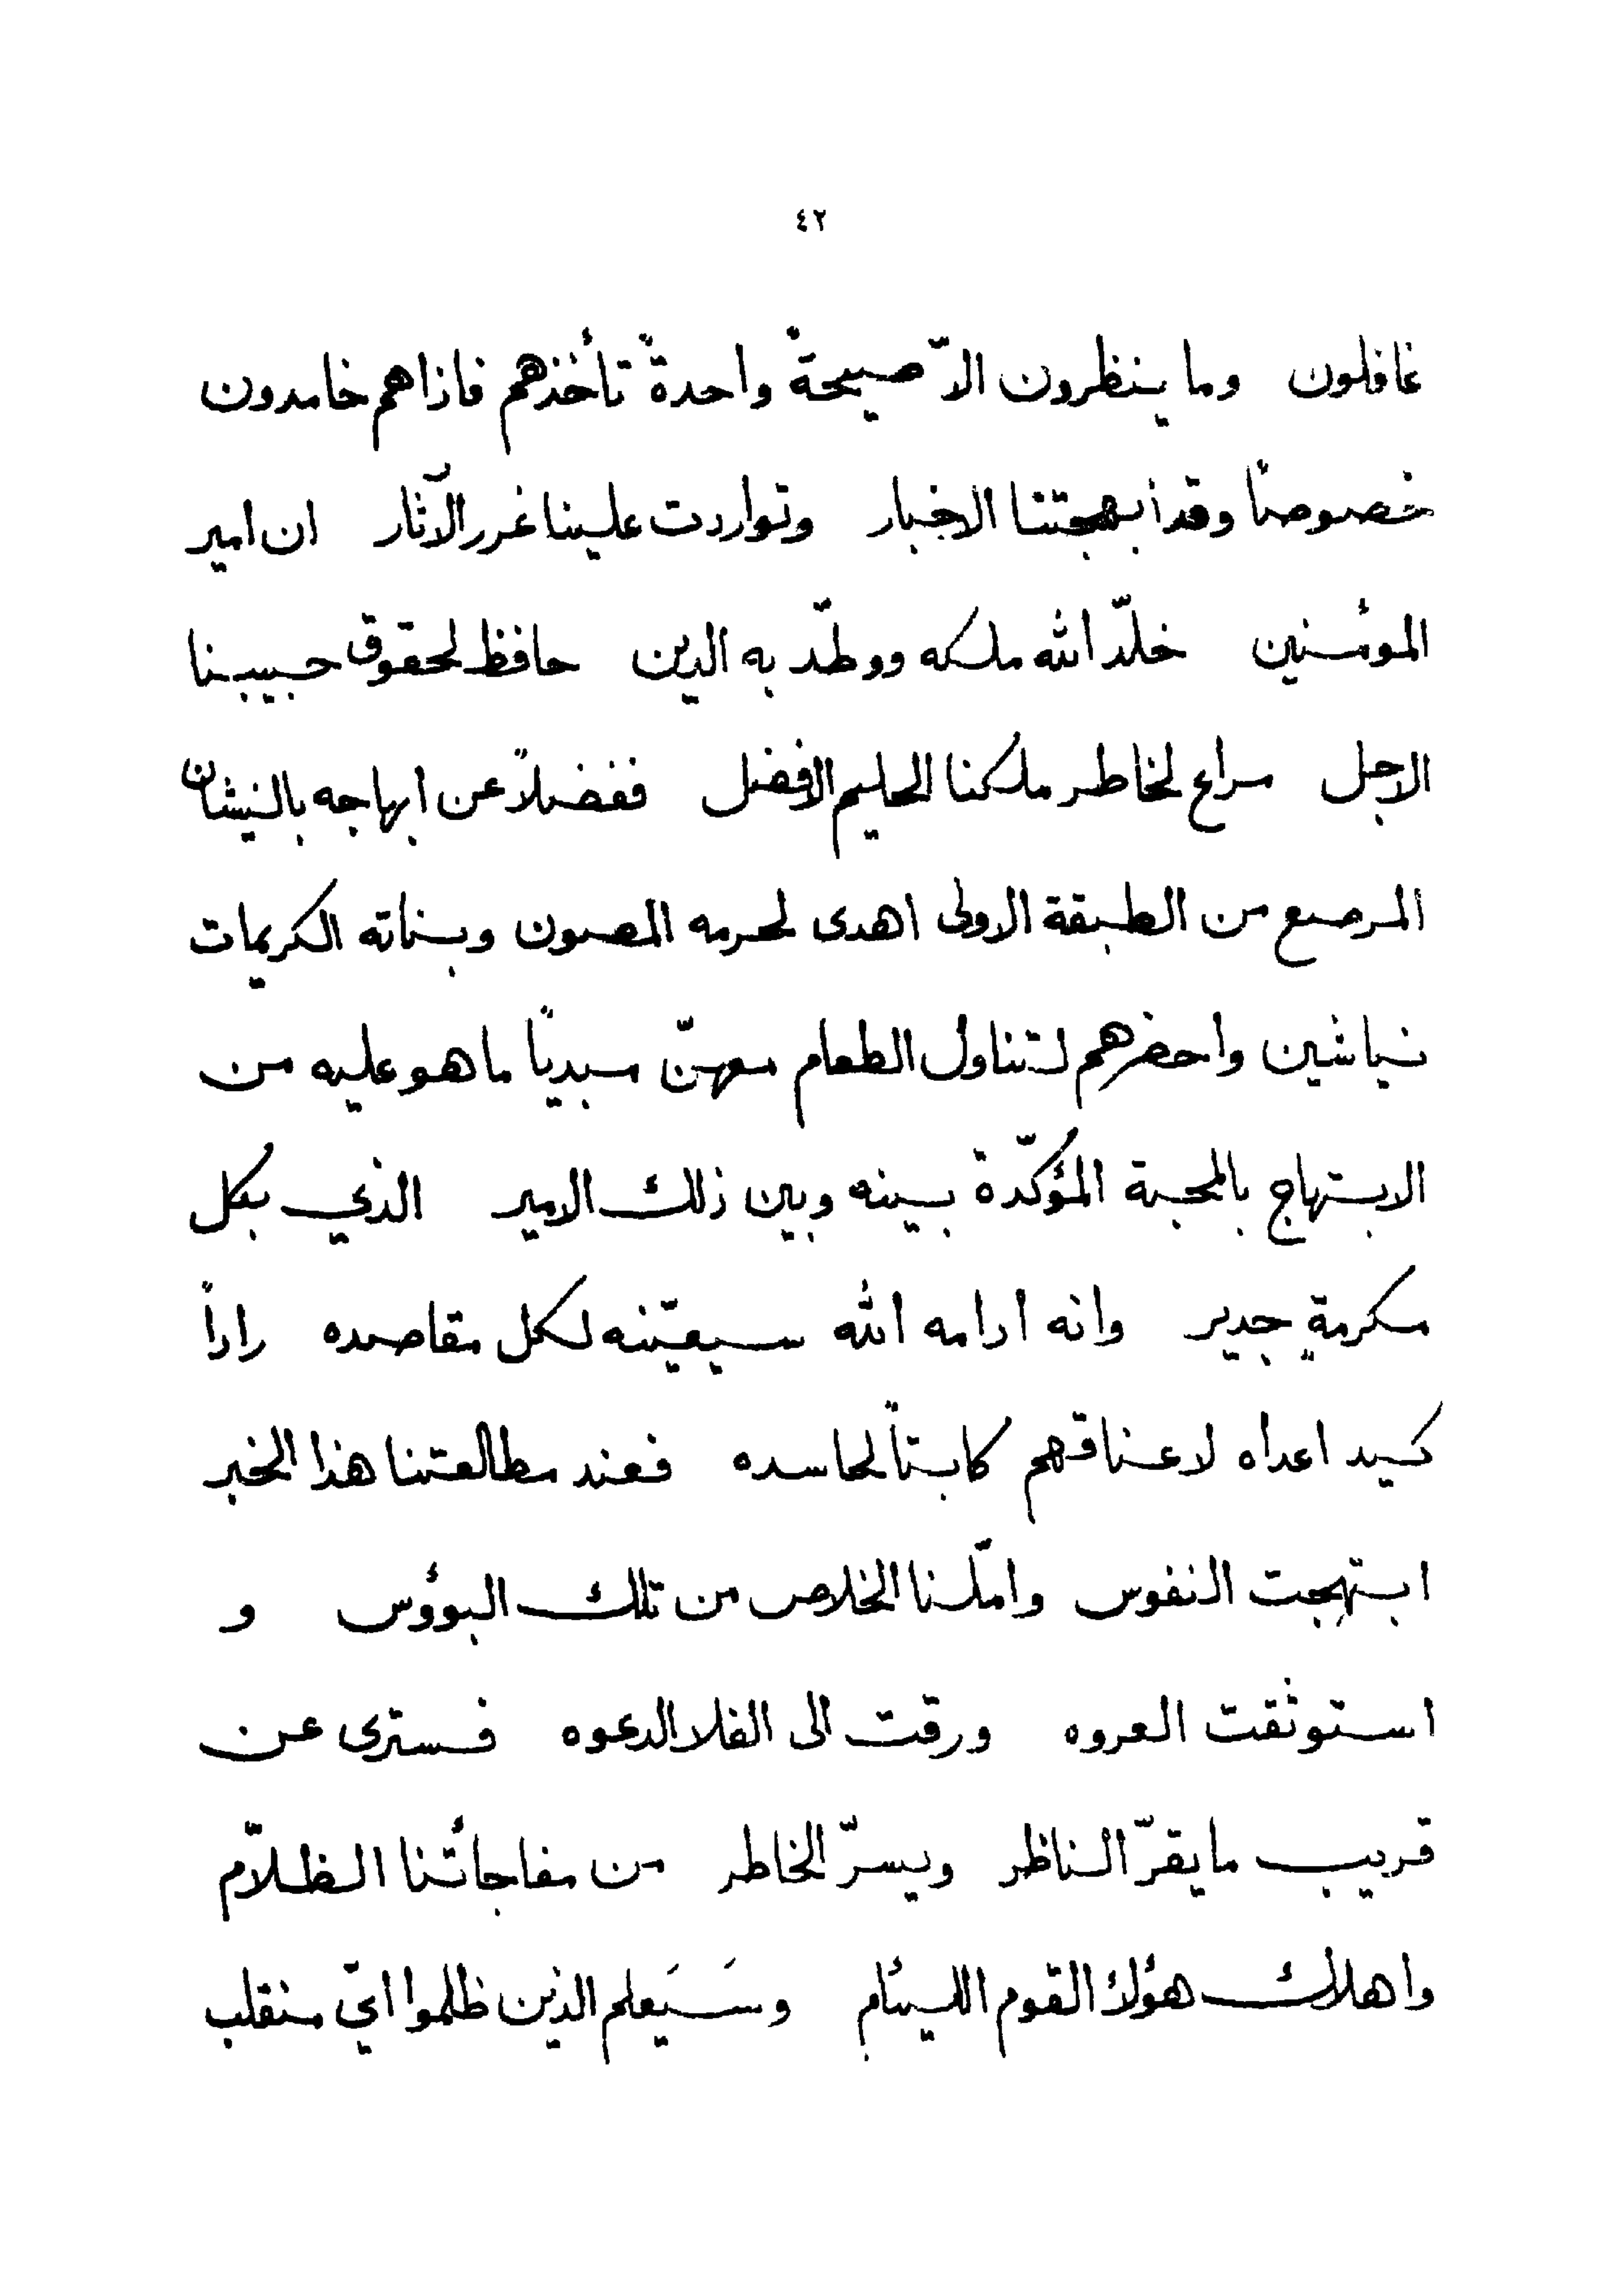 ٤٢
غافلون وما ينظرون الاّ صيحةً واحدةً تأخذهم فاذاهم خامدون
خصوصاً وقد أبهجتنا الاخبار وتواردت علينا غرر الآثار ان امير
المؤمنين خلّد الله ملكه ووطّد به الدين حافظ لحقوق حبيبنا
الاجل مراع لخاطر ملكنا الحليم الافضل ففضلاً عن ابهاجه بالنيشان
المرصع من الطبقة الاولى اهدى لحرمه المصون وبناته الكريمات
نياشين واحضرهم لتناول الطعام معهنّ مبدياً ما هو عليه من
الابتهاج بالمحبة المؤكّدة بينه وبين ذلك الامير الذي بكل
مكرمةٍ جدير وانه ادامه الله سيعيّنه لكل مقاصده راداً
كيد اعداه لاعناقهم كابتاً لحاسده فعند مطالعتنا هذا الخبر
ابتهجت النفوس وامّلنا الخلاص من تلك البوؤس و
استوثقت العروه ورقت الى الفلا الدعوه فسترى عن
قريب ما يقرّ الناظر ويسرّ الخاطر من مفاجأتنا الظلاّم
واهلاك هؤلاء القوم الليئام وسَيَعلم الذين ظلموا ايّ منقلب